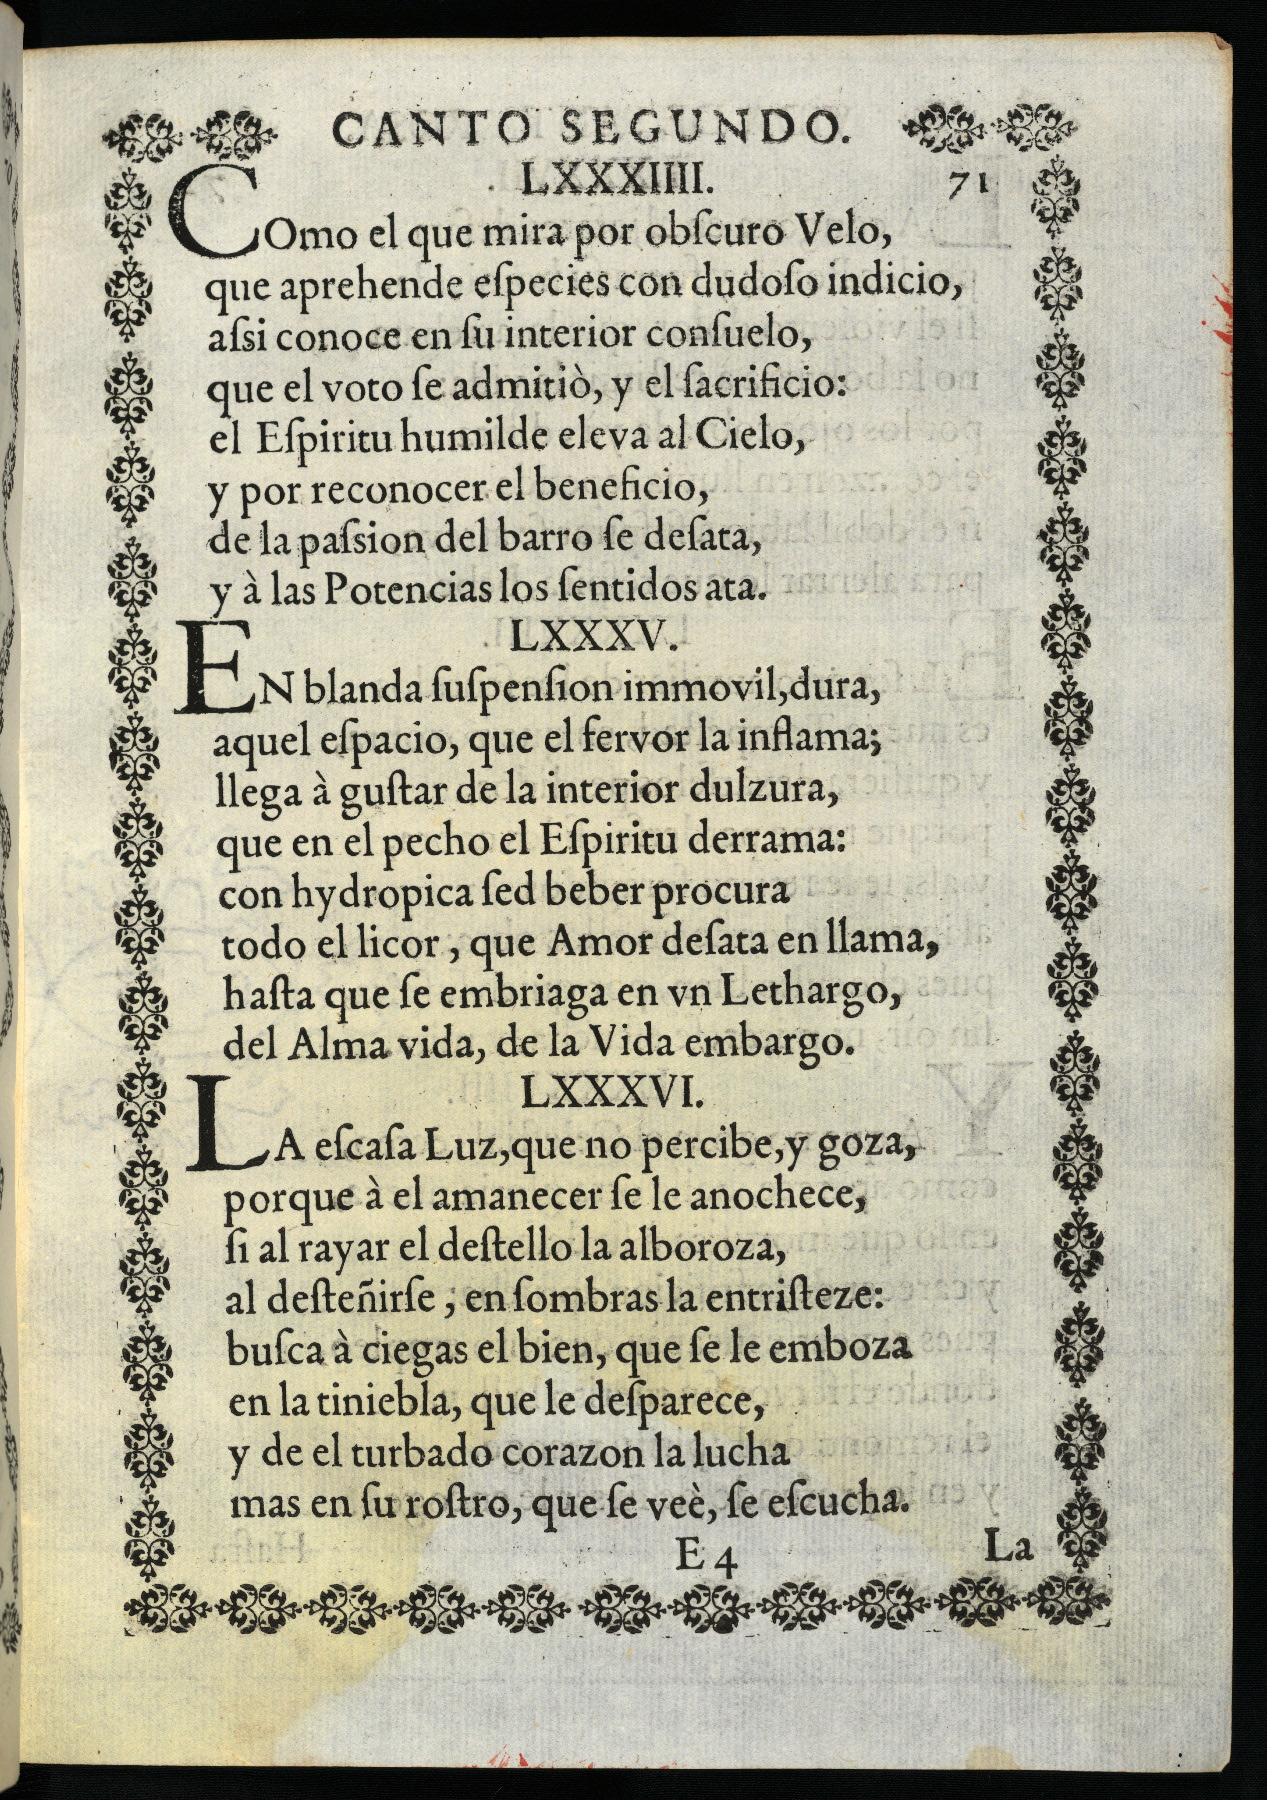 CANTO SEGUNDO.
LXXXIIII. 71
COmo el que mira por obſcuro Velo,
que aprehende eſpecies con dudoſo indicio,
aſsi conoce en ſu interior conſuelo,
que el voto ſe admitiò, y el ſacrificio:
el Eſpiritu humilde eleva al Cielo,
y por reconocer el beneficio,
de la paſsion del barro ſe deſata,
y à las Potencias los ſentidos ata.
LXXXV.
EN blanda ſuſpenſion immovil, dura,
aquel eſpacio, que el fervor la inflama;
llega à guſtar de la interior dulzura,
que en el pecho el Eſpiritu derrama:
con hydropica ſed beber procura
todo el licor, que Amor deſata en llama,
haſta que ſe embriaga en vn Lethargo,
del Alma vida, de la Vida embargo.
LXXXVI.
LA eſcaſa Luz, que no percibe, y goza,
porque à el amanecer ſe le anochece,
ſi al rayar el deſtello la alboroza,
al deſteñirſe, en ſombras la entriſteze:
buſca à ciegas el bien, que ſe le emboza
en la tiniebla, que le deſparece,
y de el turbado corazon la lucha
mas en ſu roſtro, que ſe veè, ſe eſcucha.
E 4 La